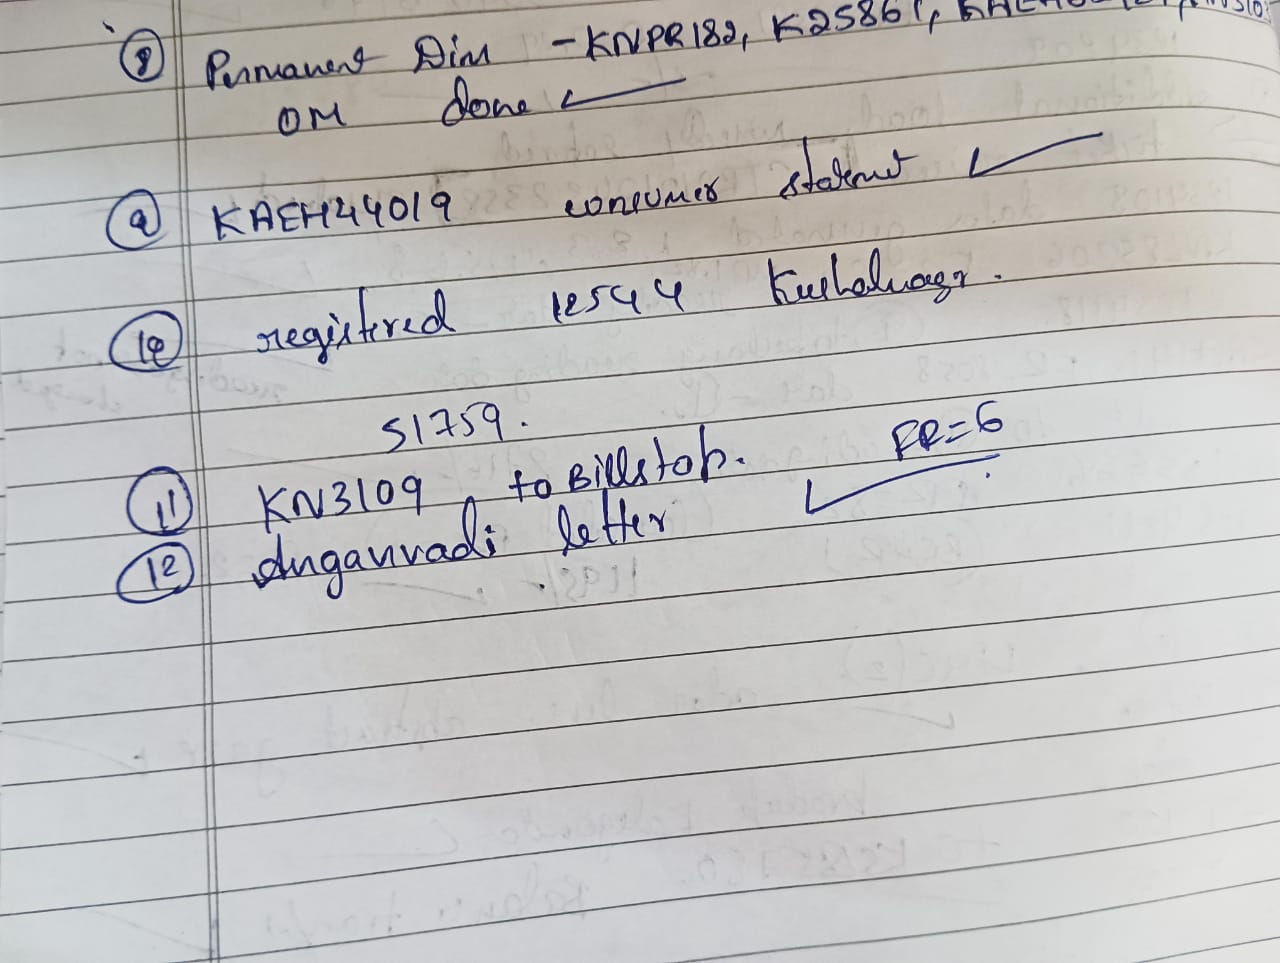 8 Permanent Dim - KNPR182, K25861,
OM done ✓
9 KAEH44019 consumer statemet ✓
10 registered 12544 Kushalnagr.
51759.
11 KN3109 to Billstop. FR=6 ✓
12 Anganvadi letter